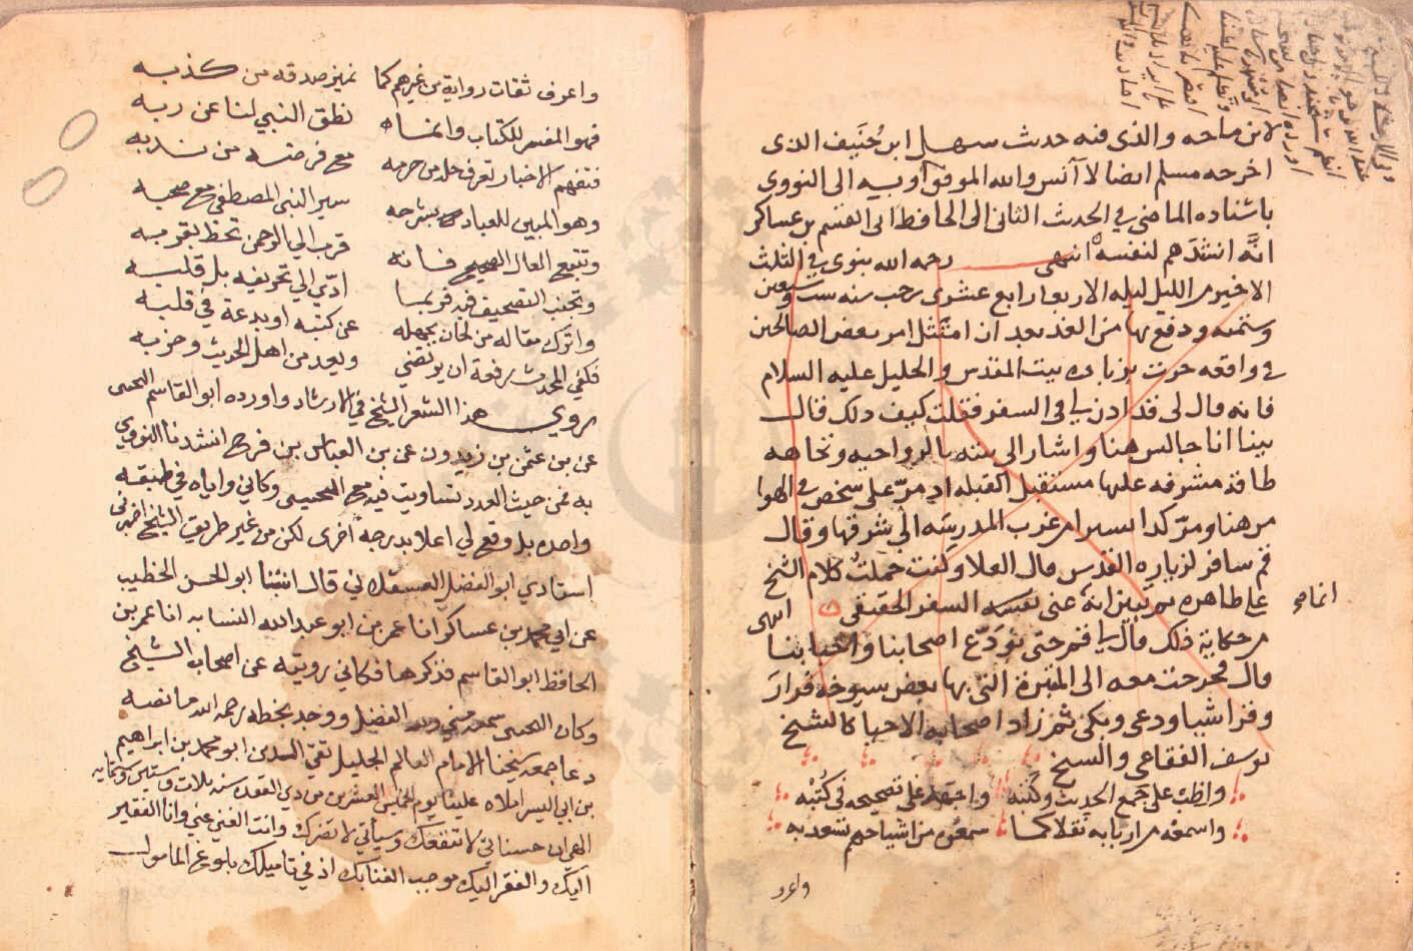 لابن ماجه والذى فيه حديث سهل ابن حُنَيف الذى
اخرجه مسلم ايضا لا آنس والله الموفق أوبه الى النووى
باسناده الماضى فى الحديث الثانى الى الحافظ ابى القسم بن عساكر
انَّه انشدهم لنفسه انتهى رحمه الله بنوى فى الثلث
الاخير من الليل ليله الاربعا رابع عشرى رجب سنه ست وسبعين
وستمه ودفع بها من الغد بعد ان امتثل امر بعض الصالحين
فى واقعه جرت بزياره بيت المقدس والخليل عليه السلام
فانه قال لى قد اذن لى فى السفر فقلت كيف ذلك قال
بينا انا جالس هنا واشار الى بيته بالرواحيه وتجاهه
طاقة مشرفه عليها مستقبل القبله اذ مرّ على شخص فى الهوا
من هنا ومرّ كذا يسير من غرب المدرسه الى شرقها وقال
قم سافر لزياره القدس قال العلا وكنت حملت كلام الشيخ
على ظاهره ثم تبين انه عنى نفسه السفر الحقيقى انتهى
انما هو
من حكاية ذلك قال لى قم حتى نودّع اصحابنا واحبابنا
قال فخرجت معه الى المقبرة التى بها بعض شيوخه فزار
وقرا شيا ودعى وبكى ثم زار اصحابه الاحيا كالشيخ
يوسف الفقاعى والشيخ
واظب على جمع الحديث وكتبه واجهد على تصحيحه فى كُتْبِه
واسمعه من اربابه نقلا كما سمعوه من اشياخهم تسعد به
واعرف
واعرف ثقات رواية من غيرهم كما تميز صدقه من كذبه
فهو المفسر للكتاب وانما نطق النبى لنا عن ربه
فتفهم الاخبار تعرف حله من حرمه مع فرضه من ندبه
وهو المبين للعباد بشرحه سير النبى المصطفى مع صحبه
وتتبع العال الصحيح فانه قرب الى الرحمن تحظ بقربه
وتجنب التصحيف فيه فربما ادّى الى تحريفه بل قلبه
واترك مقاله من لحان بجهله عن كتبه او بدعة فى قلبه
فكفى المحدث رفعة ان يرتضى ويعد من اهل الحديث وحزبه
يروى هذا الشعر الشيخ فى الارشاد واورده ابو القاسم التجيبى
عن بن عثمن بن زيدون عن بن العباس بن فرح انشدنا النووى
به فمن حيث العدد تساويت فيه مع التجيبى وكانى واياه فى طبقه
واحده بل وقع لى اعلا بدرجة أخرى لكن من غير طريق الشيخ اخبرنى
استادى ابو الفضل العسقلانى قال انبئنا ابو الحسن الخطيب
عن ابى محمد بن عساكر انا عمر من ابو عبد الله النسابه انا عمر بن
الحافظ ابو القاسم فذكرها فكانى رويته عن اصحاب الشيخ
وكان التجيبى سمعه منى ولله الفضل ووجد بخطه رحمه الله ما نصه
دعا جمعه شيخنا الامام العالم الجليل تقى الدين ابو محمد بن ابراهيم
بن ابى اليسر املاه علينا يوم الخميس العشرين من ذى القعده سنه ثلاث وستين وستمايه
الهى ان حسناتى لا تنفعك وسيأتى لا تضرك وانت الغنى عنى وانا الفقير
اليك والفقر اليك موجب الغنا بك اذ فى تاميلك بلوغ المامول